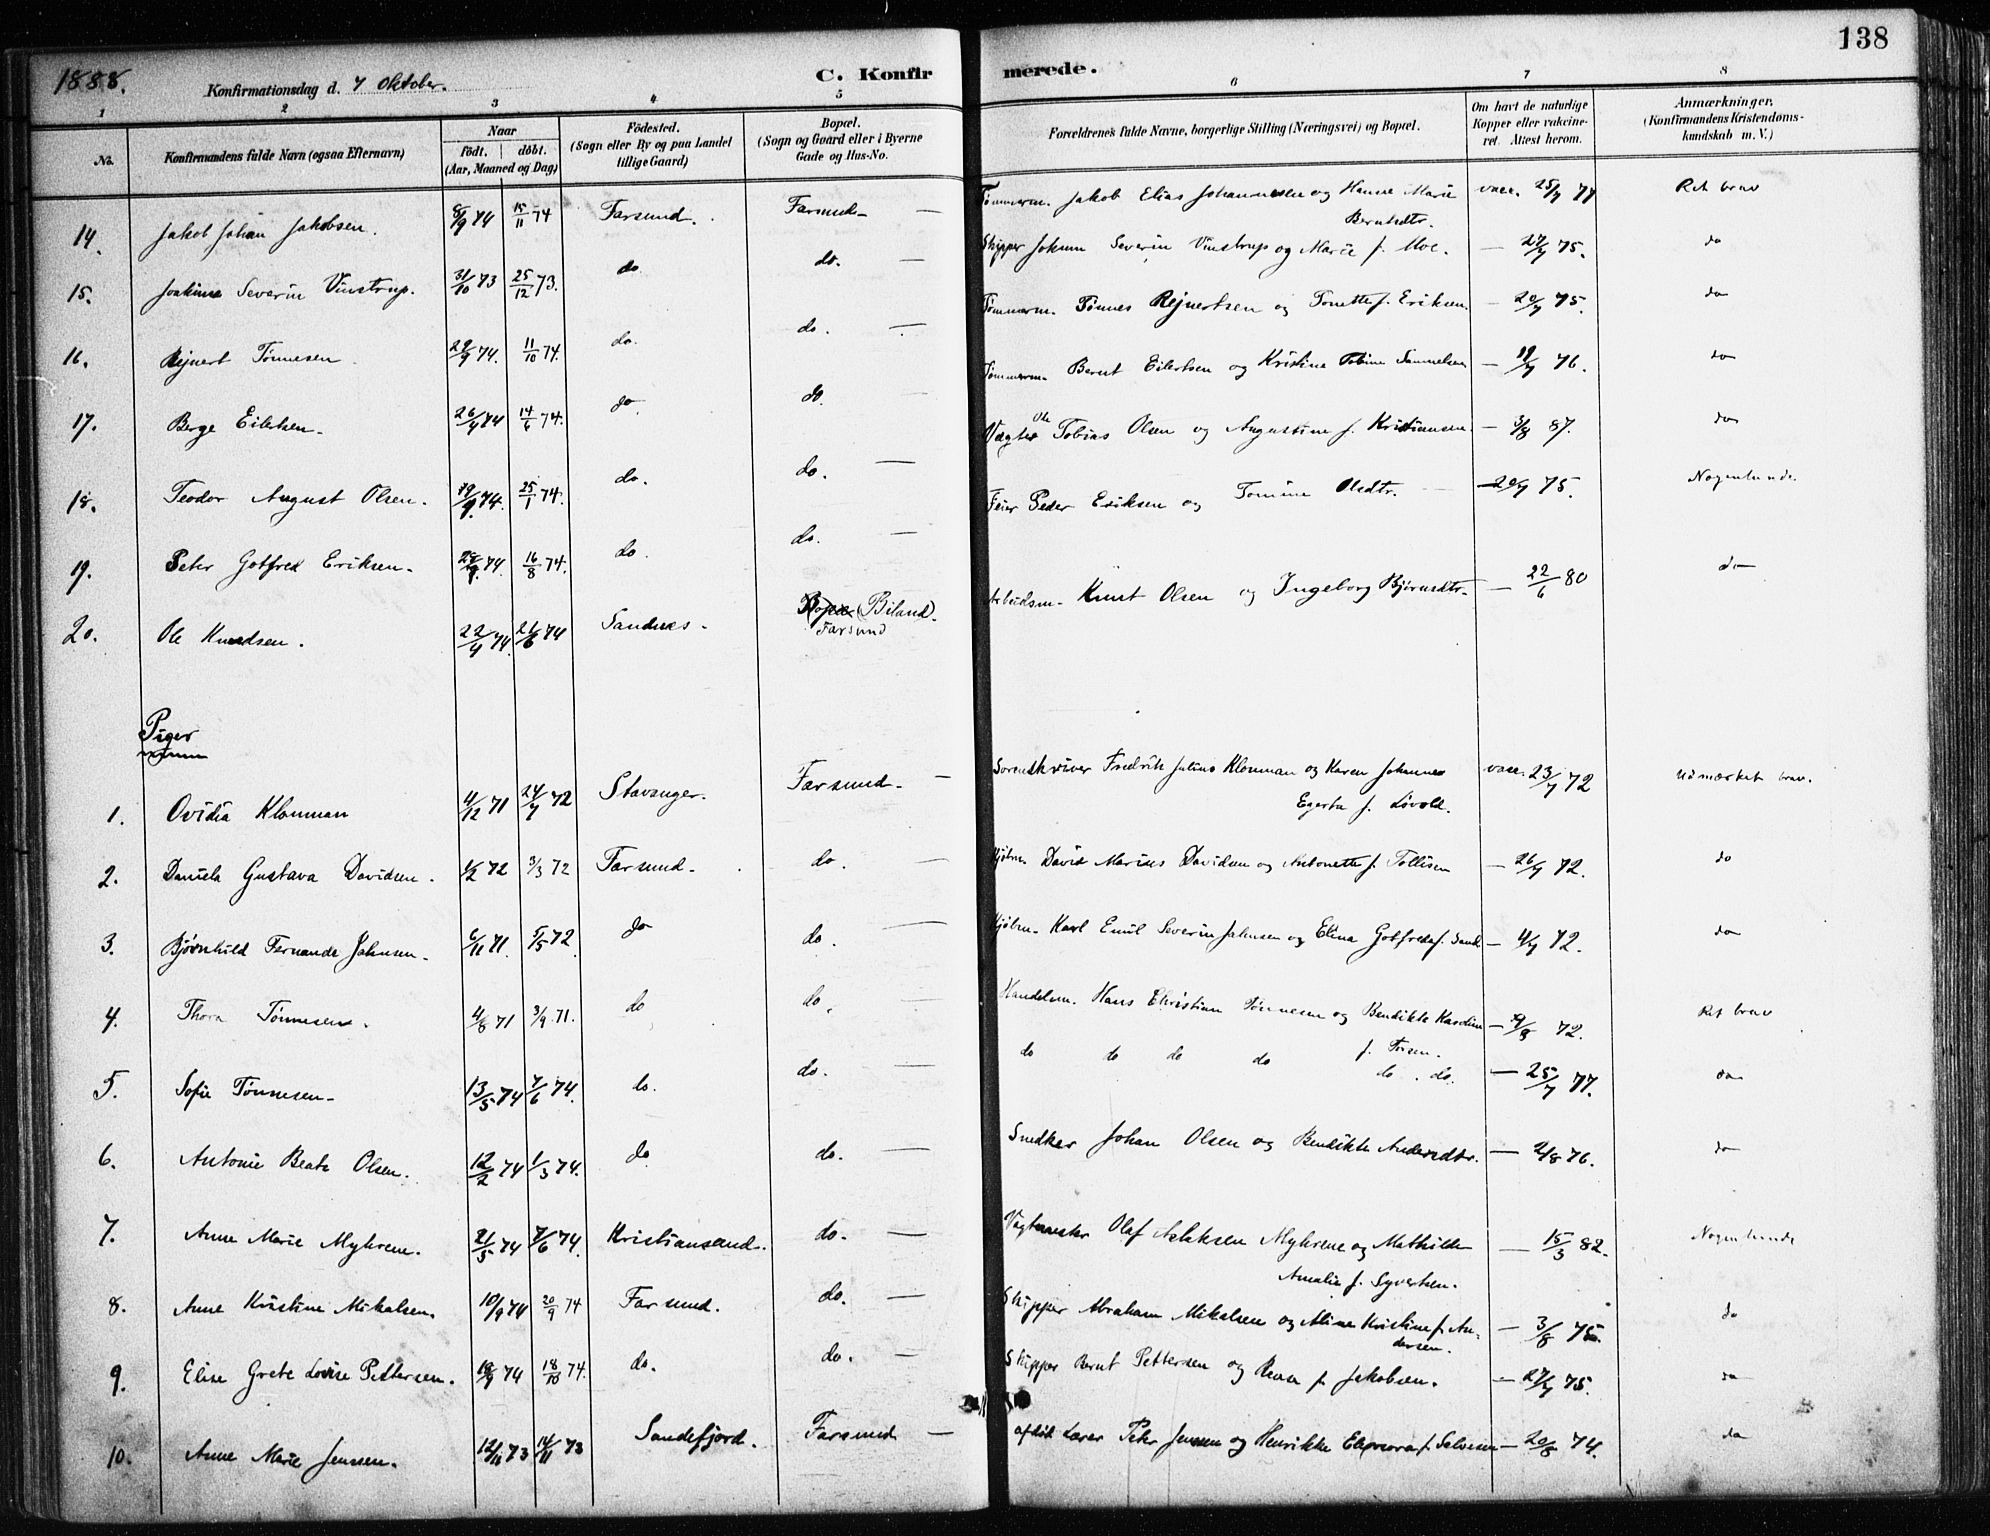 138
1888. Konfirmationsdag d. 7 Oktober. C. Konfir merede.
1 2 3 4 5 6 7 8
No. Konfirmandens fulde Navn (ogsaa Efternavn)
Naar
födt. döbt.
(Aar, Maaned og Dag)
Födested.
(Sogn eller By og paa Landet
tillige Gaard)
Bopæl.
(Sogn og Gaard eller i Byerne
Gade og Hus-No.
Forældrenes fulde Navne, borgerlige Stilling (Næringsvei) og Bopæl.
Om havt de naturlige
Kopper eller vakcine-
ret. Attest herom.
Anmærkninger,
(Konfirmandens Kristendoms-
kundskab m. V.)
14. Jakob Johan Jakobsen. 8/9 74 15/11 74 Farsund. Farsund — Tømmerm. Jakob Elias Johannesen og Hanne Marie vacc. 25/7 77 Ret brav
Berntsdtr.
15. Joakim Severin Vinstrup. 31/10 73 25/12 73. do. do. — Skipper Jokum Severin Vinstrup og Marie f. Moe. — 27/7 75. do
16. Rejnert Tønnesen 11/10 74. do. do. — Tømmerm. Tønnes Rejnertsen og Tonette f. Eriksen. — 20/7 75. do
17. Berge Eilertsen. 26/4 74 14/6 74. do do. Tømmerm. Bernt Eilertsen og Kristine Tobine Samuelsen — 19/7 76. do
18. Teodor August Olsen. 25/1 74. do. do. — Vægter Ole Tobias Olsen og Augustine f. Kristiansen. — 3/8 87. do
19. Peter Gotfred Eriksen. 16/8 74. do. do. — Feier Peder Eriksen og Tomine Olsdtr. — 20/7 75. Nogenlunde.
20. Ole Knudsen. 22/4 74. 21/6 74 Sandnes. (Biland). Arbeidsm. Knut Olsen og Ingeborg Bjørnsdtr. — 22/6 80 do
Farsund
Piger
1. Ovidia Klouman 4/12 71 24/7 72 Stavanger. Farsund. — Sorenskriver Fredrik Julius Klouman og Karen Johanne vacc. 23/7 72 Udmærket brav.
Egerta f. Løvold.
2. Daniela Gustava Davidsen. 1/2 72 3/3 72 Farsund. do. — Kjøbm. David Marius Davidsen og Antonette f. Tollisen — 26/7 72. do
3. Bjørnhild Fernanda Jahnsen. 6/11 71. 5/5 72. do do. — Kjøbm. Karl Emil Severin Jahnsen og Elina Gotfreda f. Sand — 4/7 72. do
4. Thora Tønnesen. 4/8 71 3/9 71. do do. Handelsm. Hans Christian Tønnesen og Bendikte Karoline — 72. Ret brav
f. Torsen.
5. Sofie Tønnesen. 13/5 74 7/6 74. do. do. — do do do do do. do. — 25/7 77. do
6. Antonie Beate Olsen. 12/2 74 1/3 74. do do. — Snedker Johan Olsen og Bendikte Andersdtr. — 2/8 76. do
7. Anne Marie Myhren. 21/5 74 7/6 74. Kristiansand. do. — Vagtmester Olaf Aslaksen Myhrene og Mathilde — 15/3 82. Nogenlunde
Amalie f. Syvertsen.
8. Anne Kristine Mikalsen. 10/9 74 20/9 74 Farsund. do. — Skipper Abraham Mikalsen og Aline Kristine f. An- — 3/8 75. do
dersen.
9. Elise Grete Lovise Pettersen. 19/9 74 18/10 74. do. do. — Skipper Bernt Pettersen og f. Jakobsen. — 27/7 75. do
10. Anne Marie Jenssen. 12/11 73 14/11 73 Sandefjord. Farsund — afdøde Lærer Peter Jenssen og Henrikke Eleonora f. Salvesen — 20/8 74. do